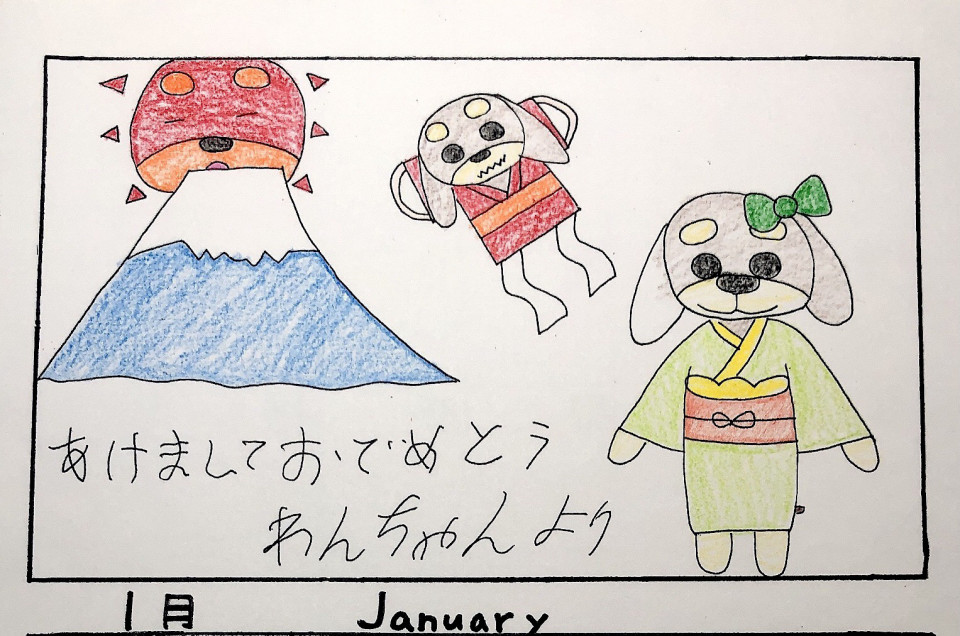 あけましておでめとう
わんちゃんより
1月 January